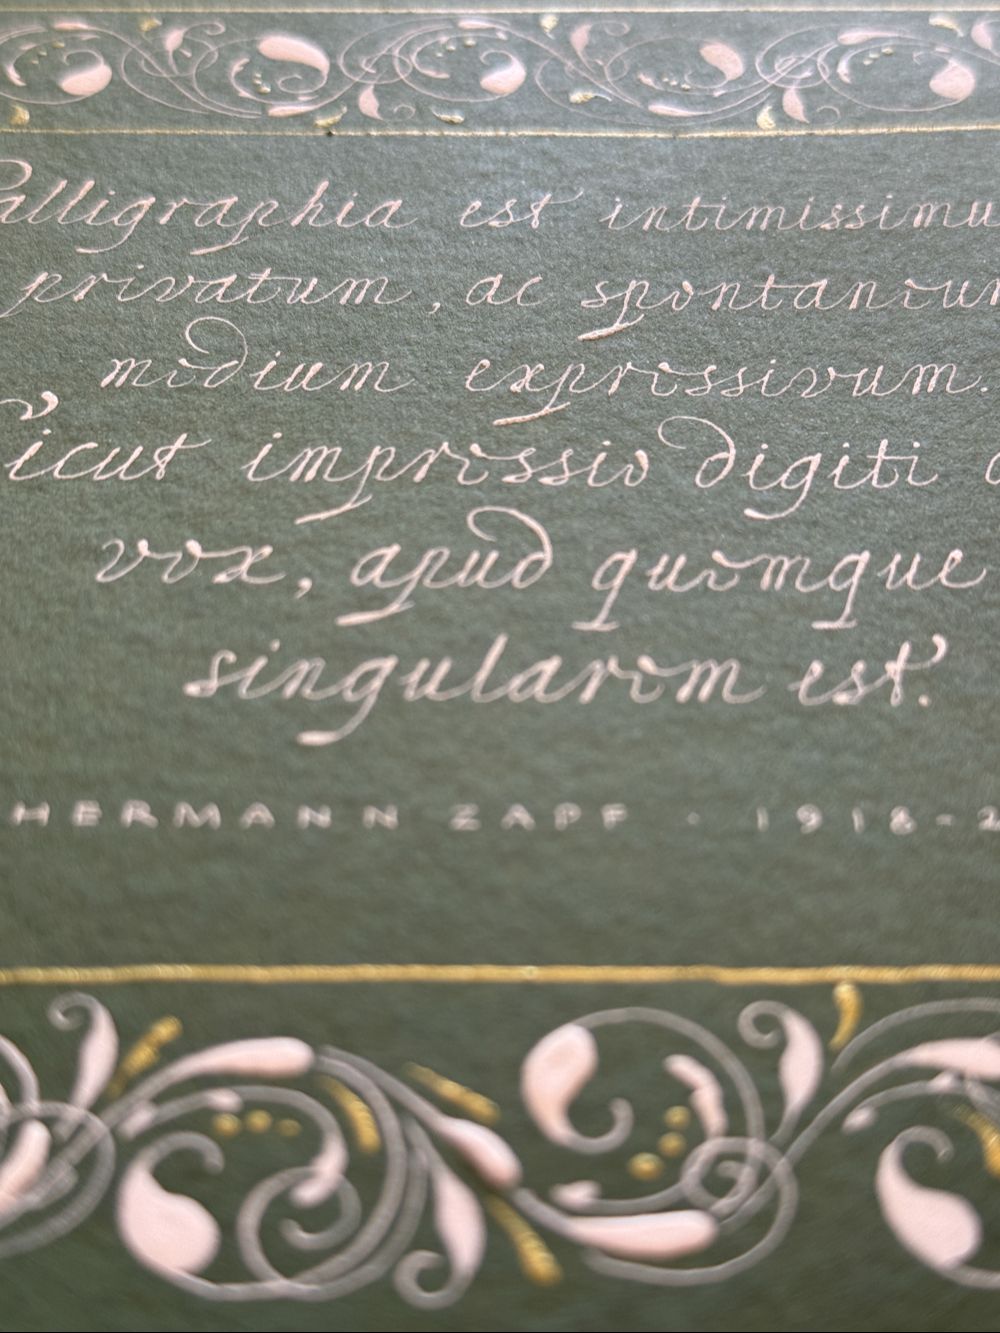 Calligraphia est intimissimu
privatum, ac spontaneum
medium expressivum.
Sicut impressio digiti
vox, apud quemque
singularem est.
HERMANN ZAPF · 1918-2